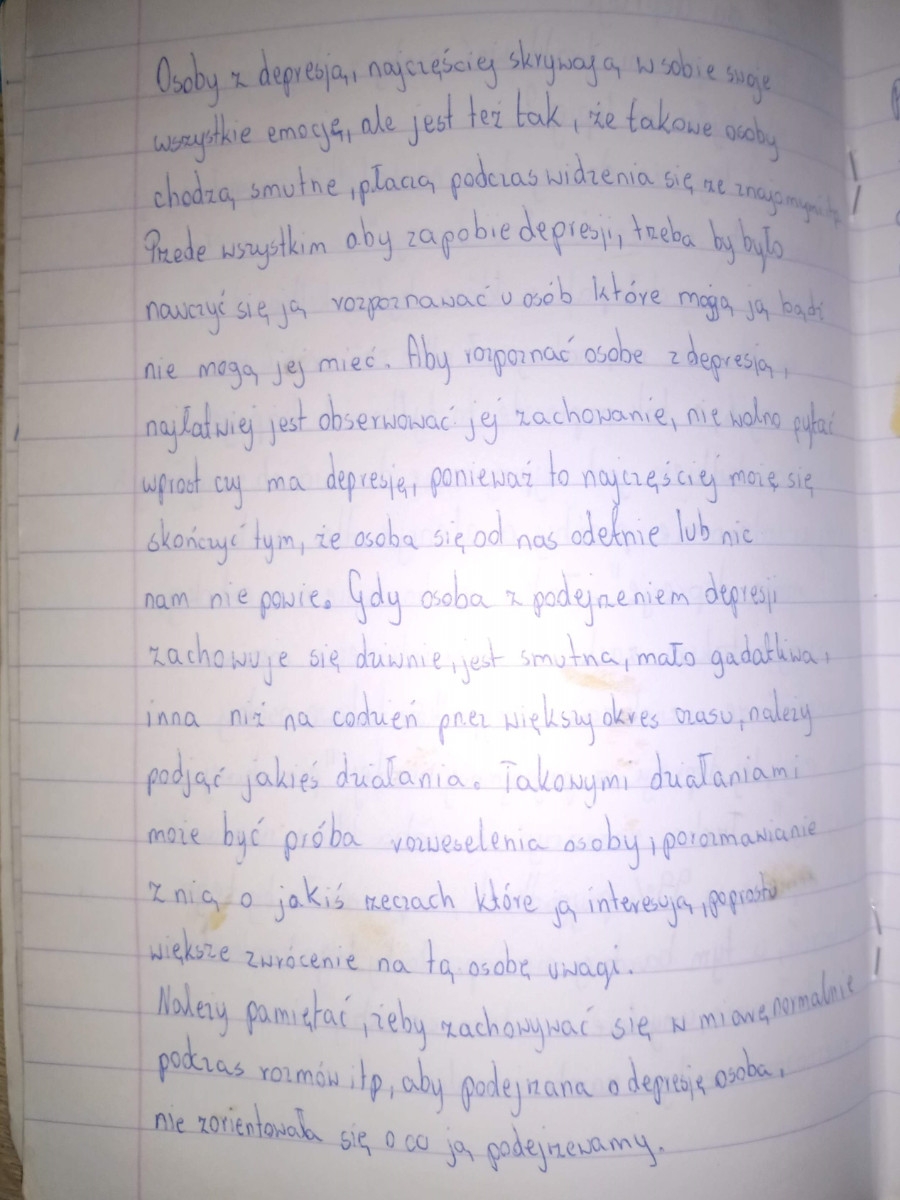 Osoby z depresją, najczęściej skrywają w sobie swoje
wszystkie emocję, ale jest też tak, że takowe osoby
chodzą smutne, płaczą podczas widzenia się ze znajomymi itp.
Przede wszystkim aby zapobie depresji, trzeba by było
nauczyć się ją rozpoznawać u osób które mogą ją bądź
nie mogą jej mieć. Aby rozpoznać osobe z depresją,
najłatwiej jest obserwować jej zachowanie, nie wolno pytać
wprost czy ma depresję, ponieważ to najczęściej może się
skończyć tym, że osoba się od nas odetnie lub nic
nam nie powie. Gdy osoba z podejrzeniem depresji
zachowuje się dziwnie, jest smutna, mało gadatliwa,
inna niż na codzień przez większy okres czasu, należy
podjąć jakieś działania. Takowymi działaniami
może być próba rozweselenia osoby, porozmawianie
z nią o jakiś rzeczach które ją interesują, poprostu
większe zwrócenie na tą osobę uwagi.
Należy pamiętać, żeby zachowywać się w miarę normalnie
podczas rozmów itp, aby podejrzana o depresję osoba,
nie zorientowała się o co ją podejrzewamy.